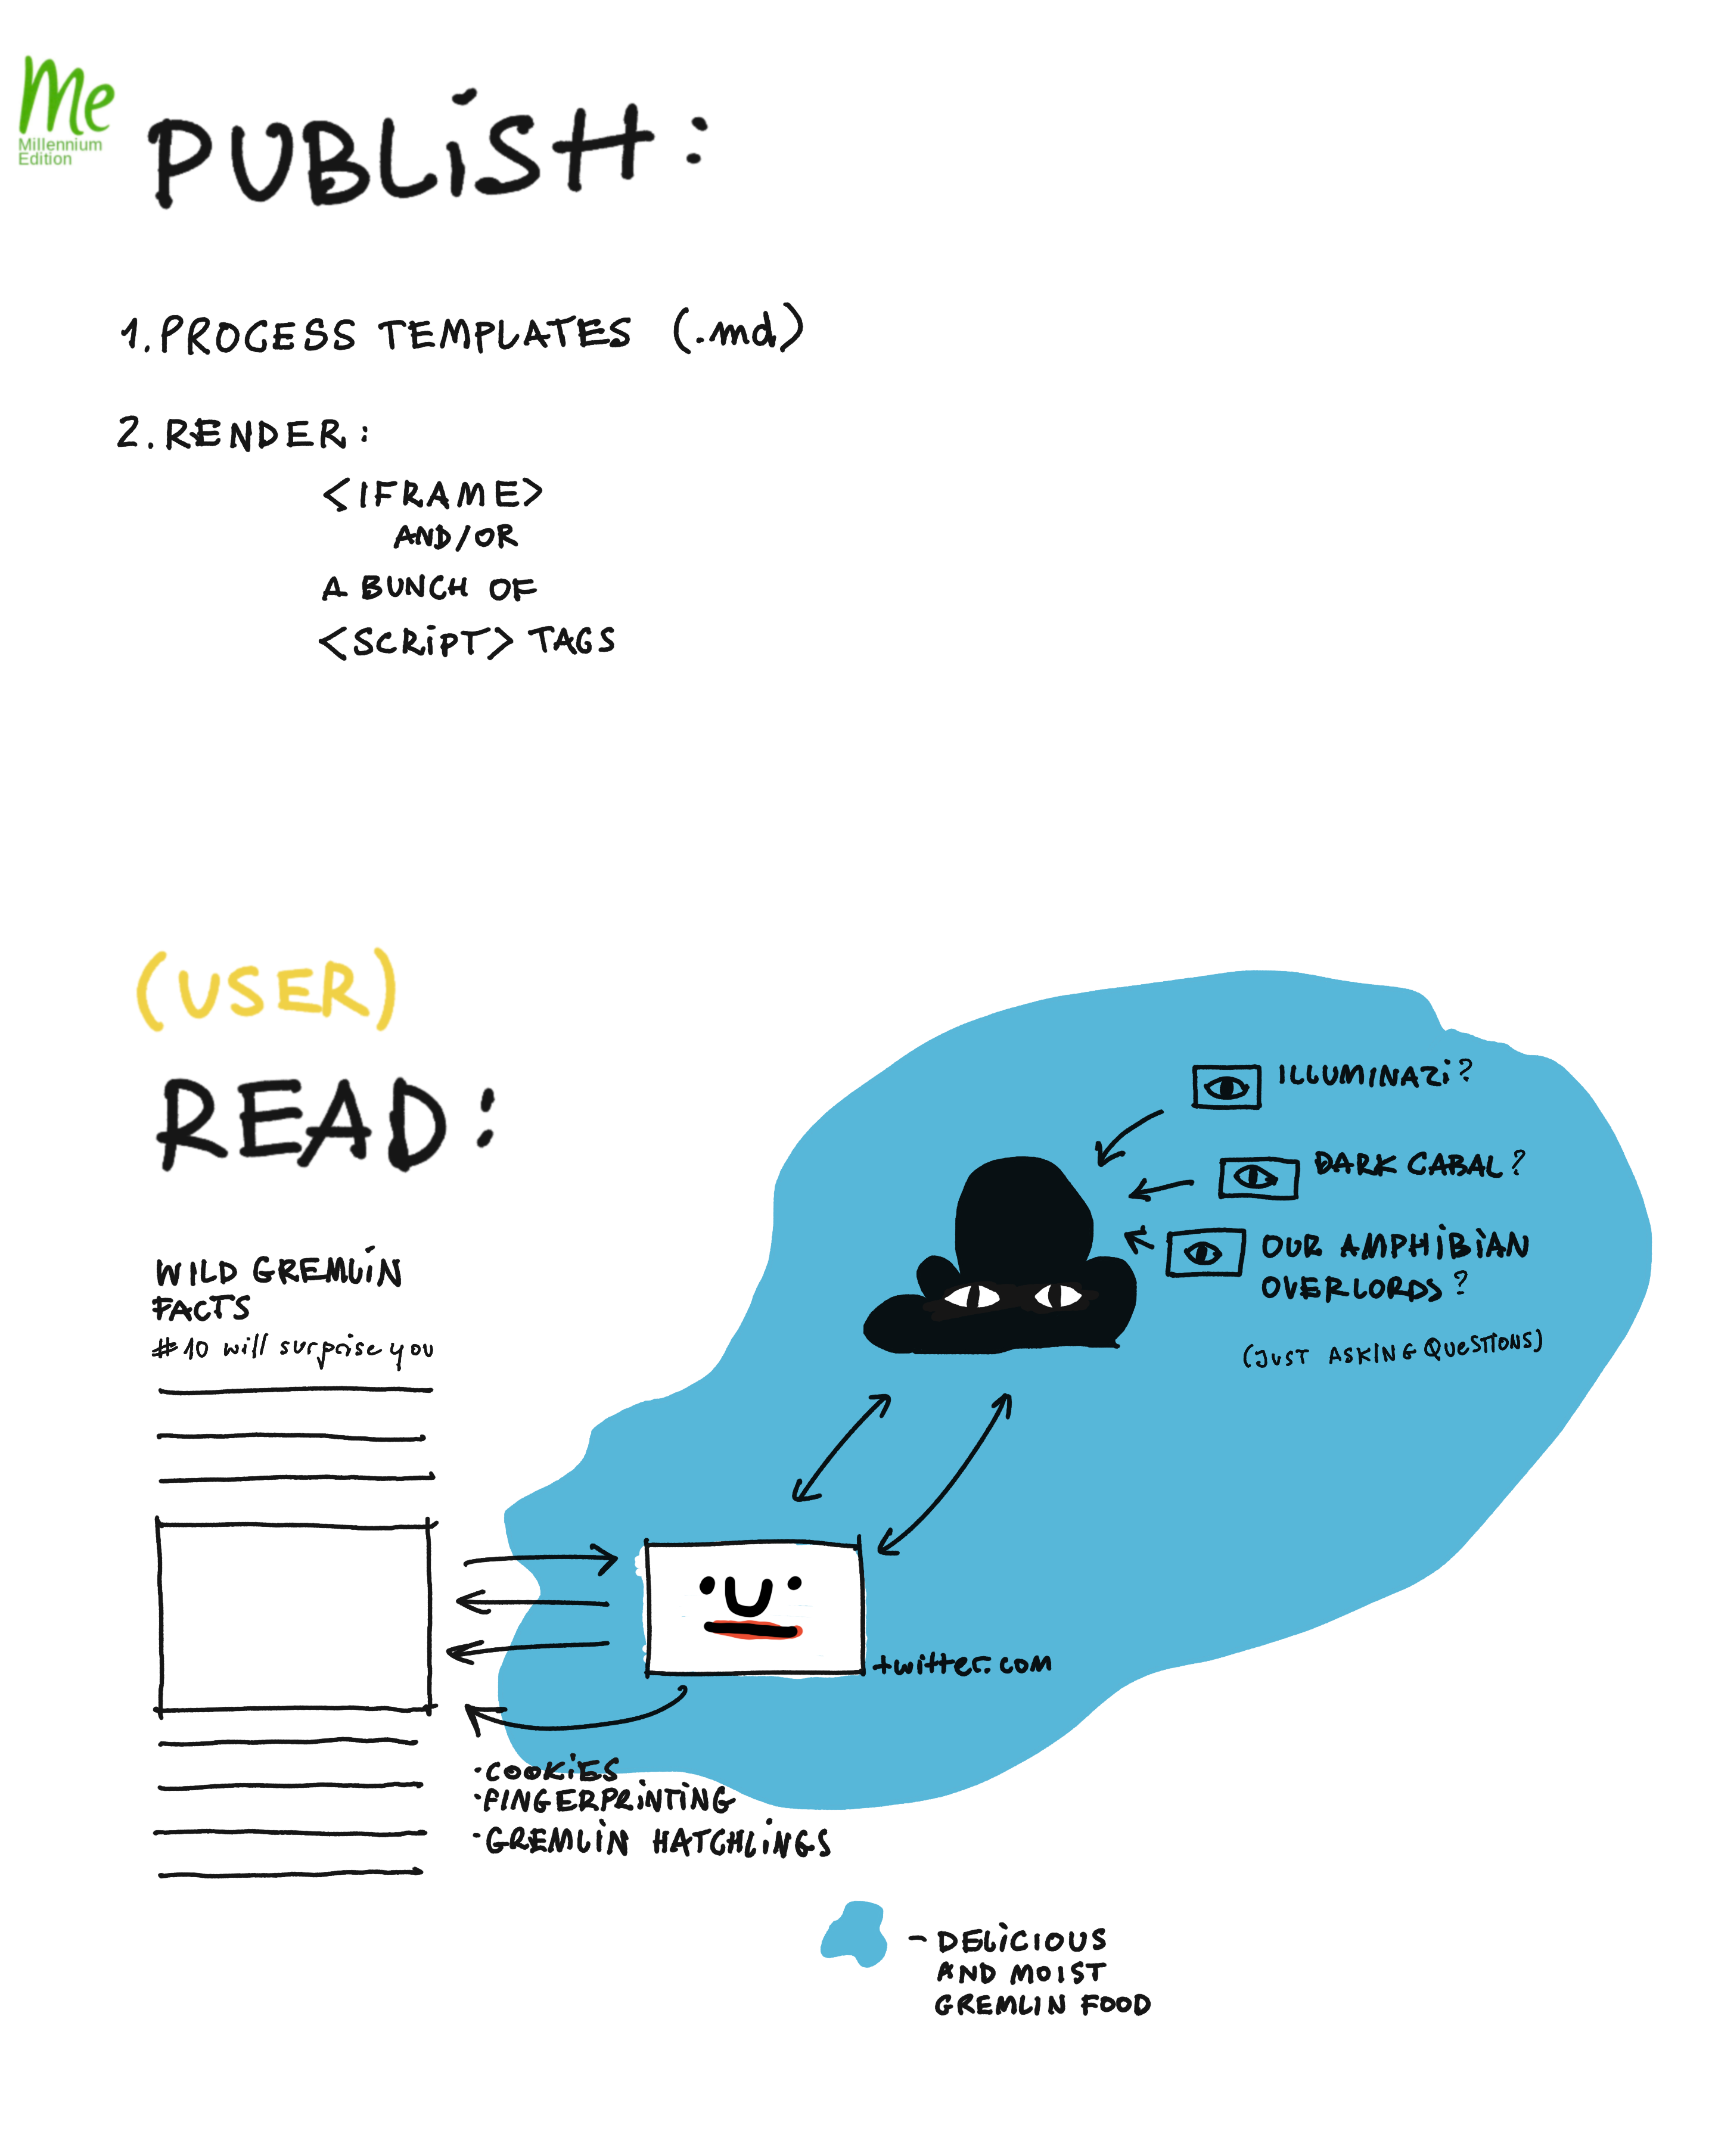 Me
Millennium
Edition
PUBLiSH:
1. PROCESS TEMPLATES (.md)
2. RENDER:
<IFRAME>
AND/OR
A BUNCH OF
<SCRiPT> TAGS
(USER)
READ:
WILD GREMLiN
FACTS
#10 will surprise you
ILLUMINAZi?
DARK CABAL?
OUR AMPHiBiAN
OVERLORDS?
(JUST ASKING QUESTIONS)
twitter.com
·COOKiES
·FiNGERPRiNTiNG
·GREMLiN HATCHLiNGS
- DELiCIOUS
AND MOIST
GREMLIN FOOD